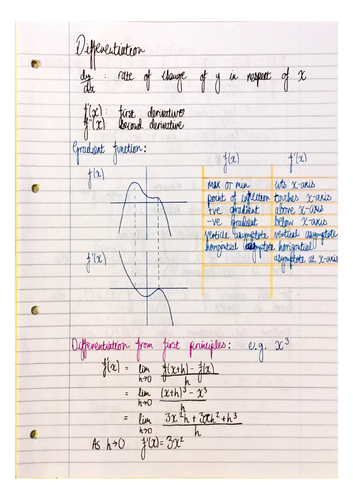 Differentiation
dy/dx : rate of change of y in respect of x
f'(x) : first derivative
f''(x) : second derivative
Gradient function:
f(x) f'(x)
f(x)
max or min cuts x-axis
point of inflection touches x-axis
+ve gradient above x-axis
-ve gradient below x-axis
verticle asymptote vertical asymptote
horizontal asymptote horizontal
asymptote at x-axis
f'(x)
Differentiation from first principles: e.g. x³
f'(x) = lim h→0 f(x+h) - f(x) / h
= lim h→0 (x+h)³ - x³ / h
= lim h→0 3x²h + 3xh² + h³ / h
As h→0 f'(x) = 3x²